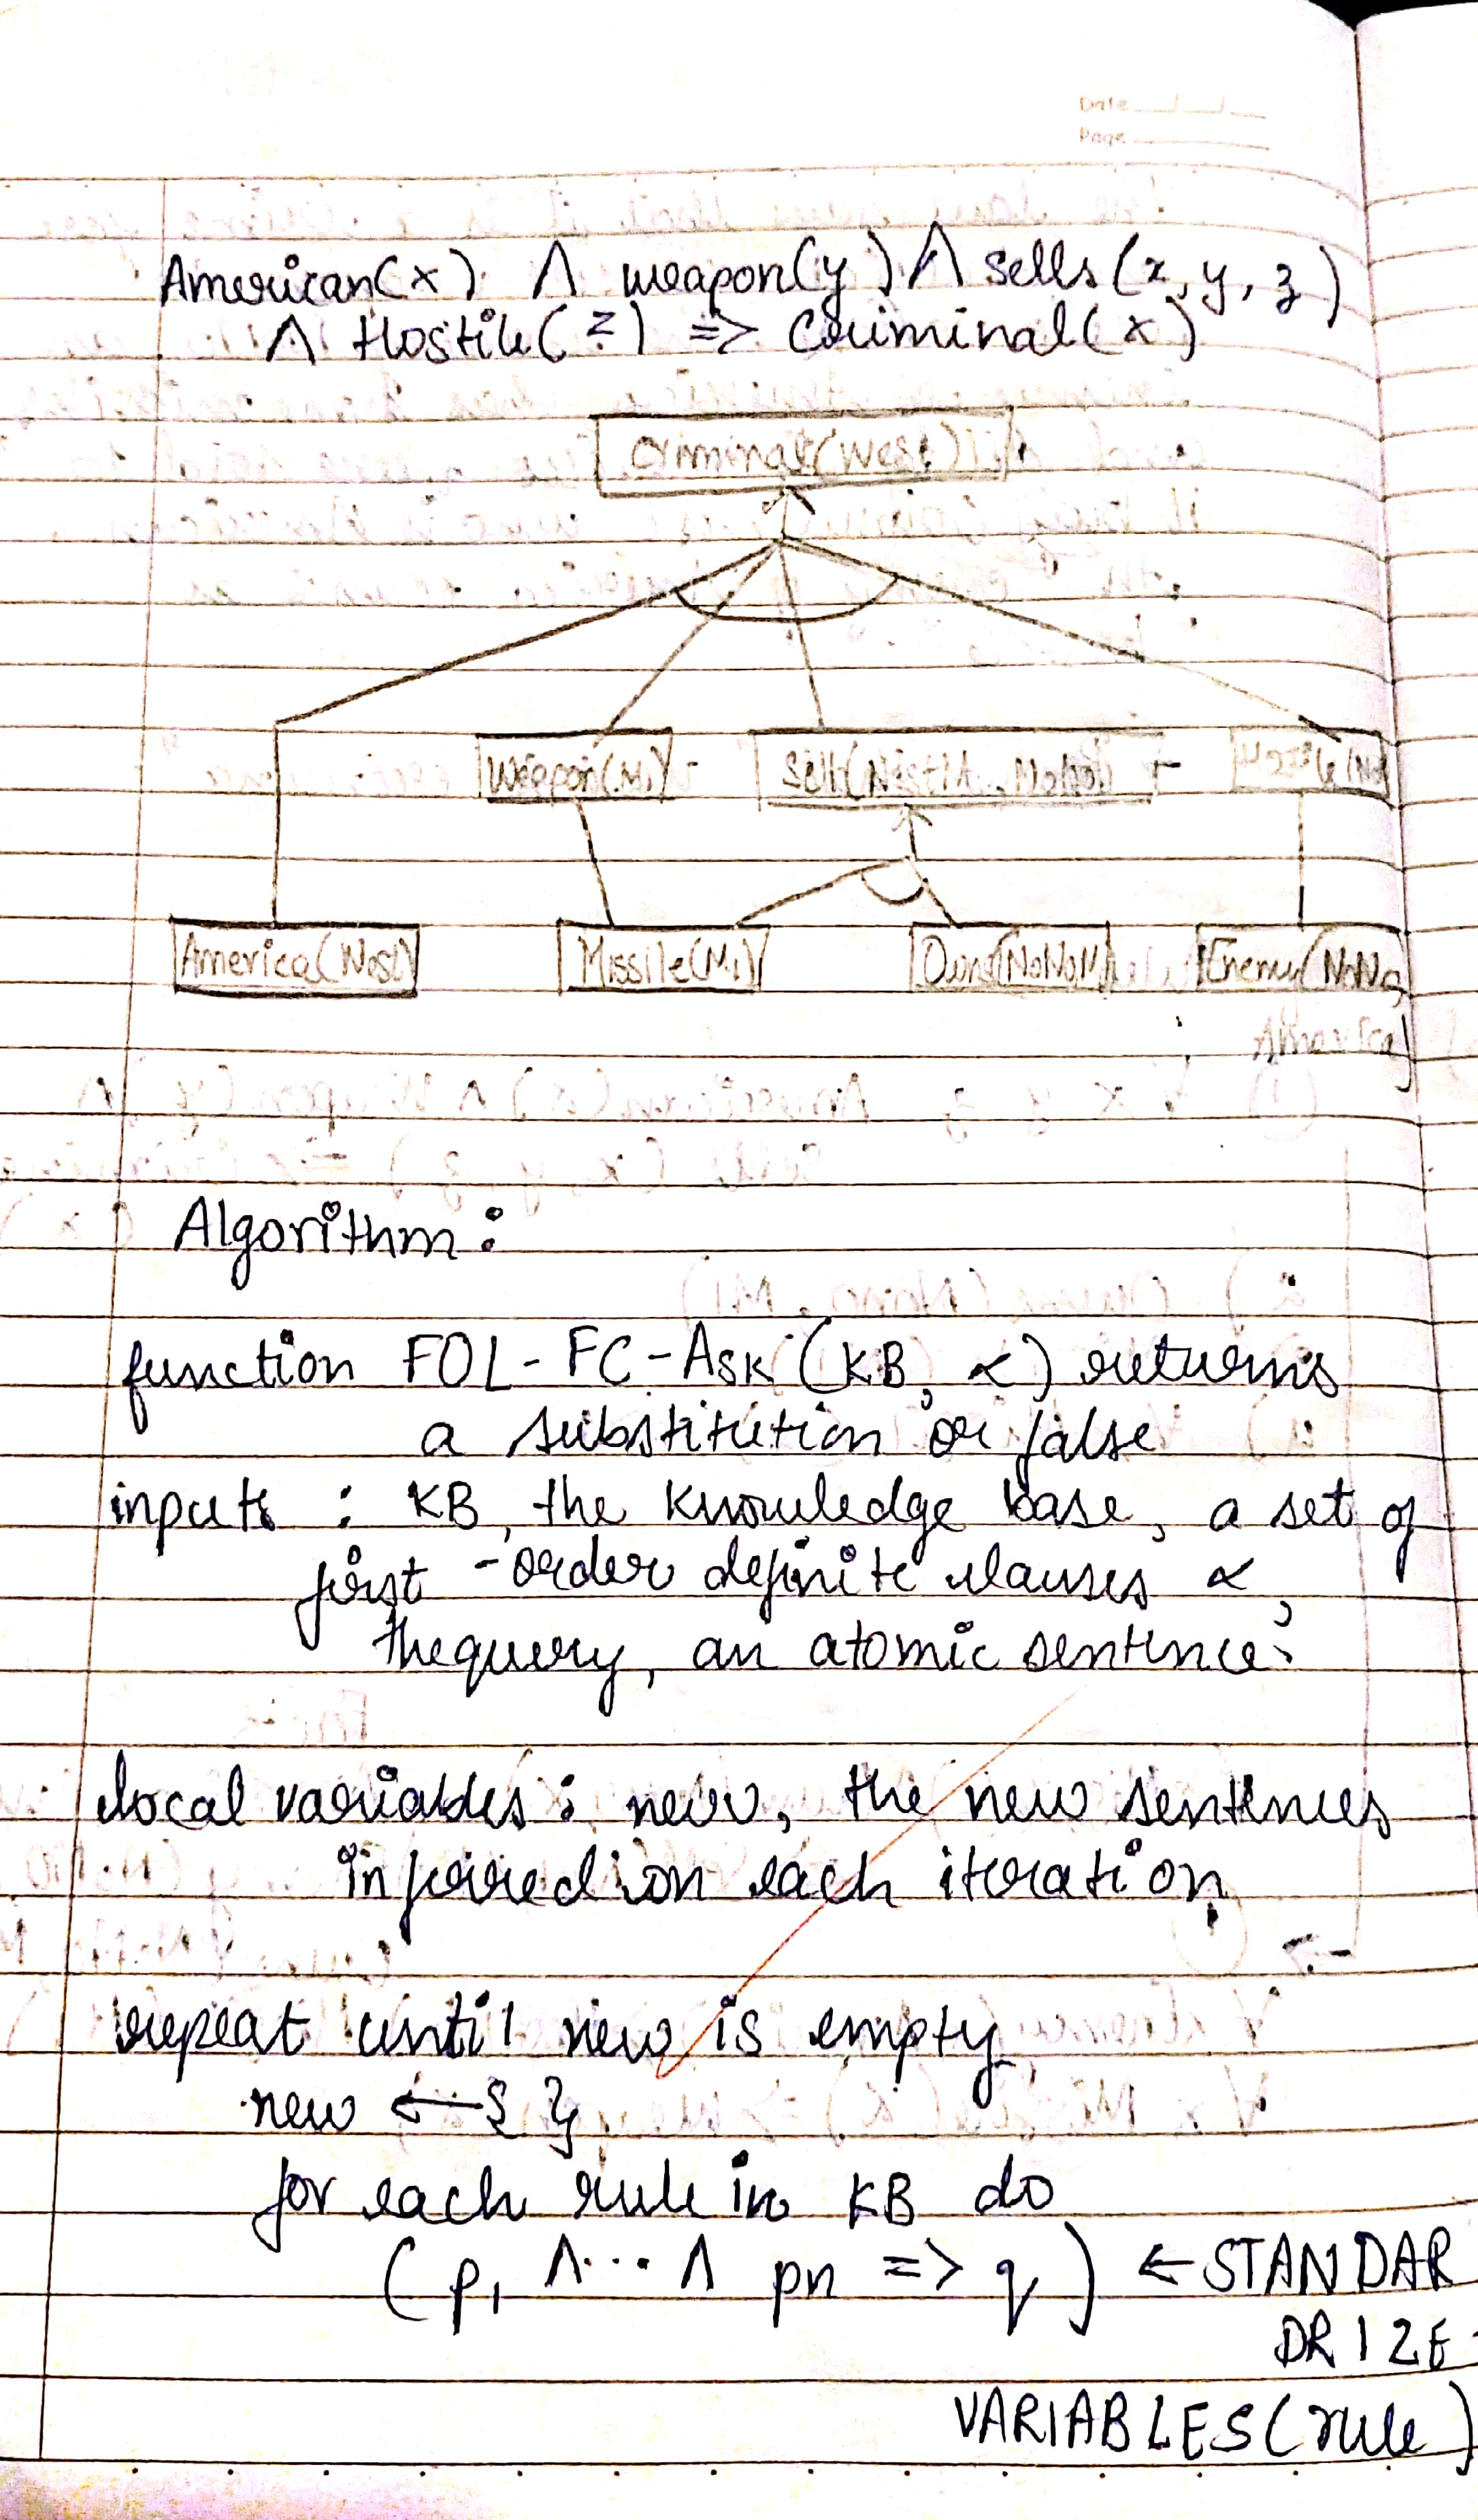 Date
Page
American(x) ∧ weapon(y) ∧ sells(x, y, z)
∧ Hostile(z) => Criminal(x)
Criminal(West)
Weapon(M1)
America(West)
Missile(M1)
Owns(NoNoM
Enemy(NoNo,
America)
Algorithm:
function FOL-FC-ASK(KB, α) returns
a substitution or false
inputs : KB, the knowledge base, a set of
first-order definite clauses α,
thequery, an atomic sentence.
local variables: new, the new sentences
inferred on each iteration
repeat until new is empty
new ← { }
for each rule in KB do
(p1 ∧...∧ pn => q) ← STANDAR
DRIZE-
VARIABLES(rule)